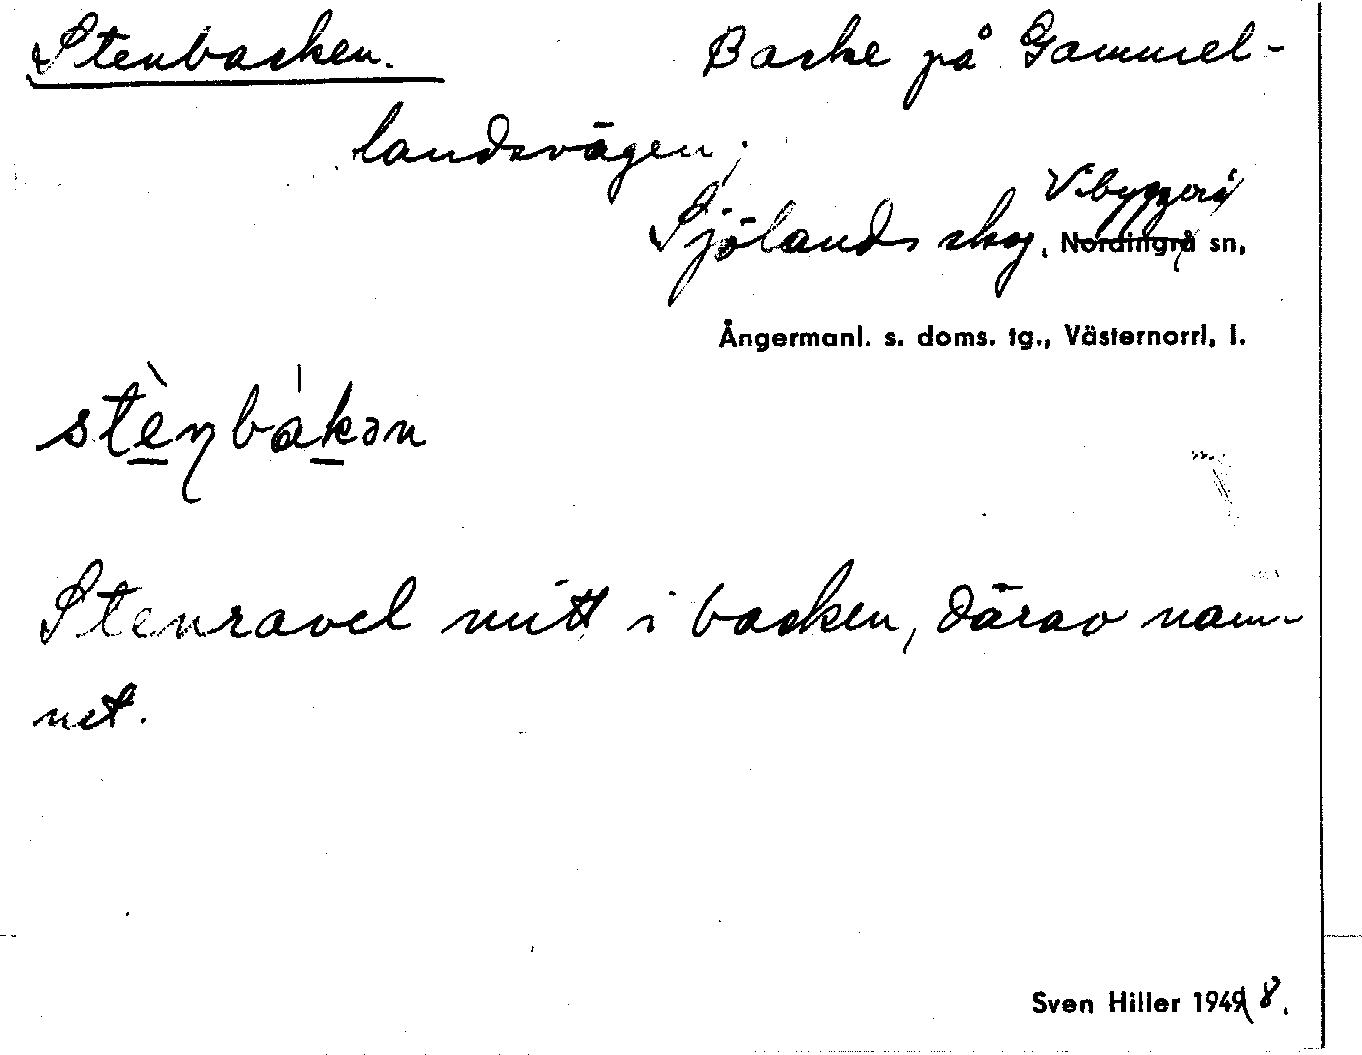 Stenbacken. Backe på Gammel-
landsvägen,
Sjölands skog, Vibyggerå
Nordingrå sn,
Ångermanl. s. doms. tg., Västernorrl, l.
stènbákən
Stenravel mitt i backen, därav nam-
net.
Sven Hiller 1949 8.